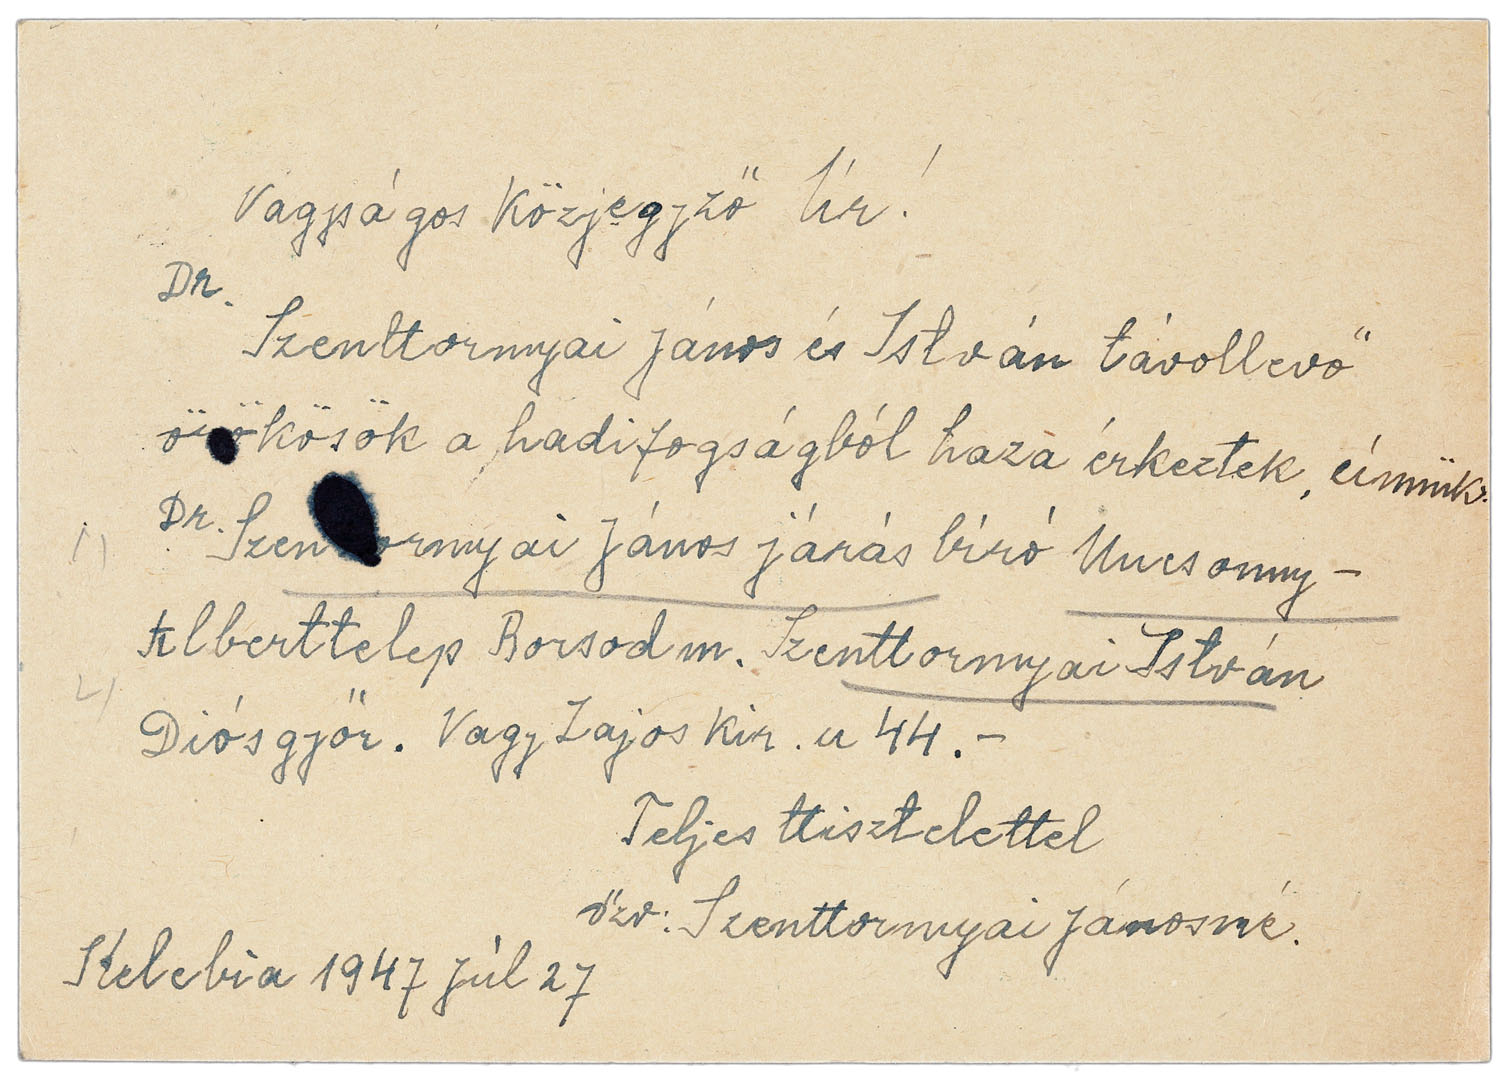 Nagyságos Közjegyző Úr!
Dr.
Szenttornyai János és István távollevő
örökösök a hadifogságból haza érkeztek, címük.
1) Dr. Szenttornyai János járás bíró Mucsonny -
Alberttelep Borsod m. Szenttornyai István
2) Diósgyőr. Nagy Lajos Kir. u 44. -
Teljes tisztelettel
özv: Szenttornyai Jánosné.
Kelebia 1947 júl 27